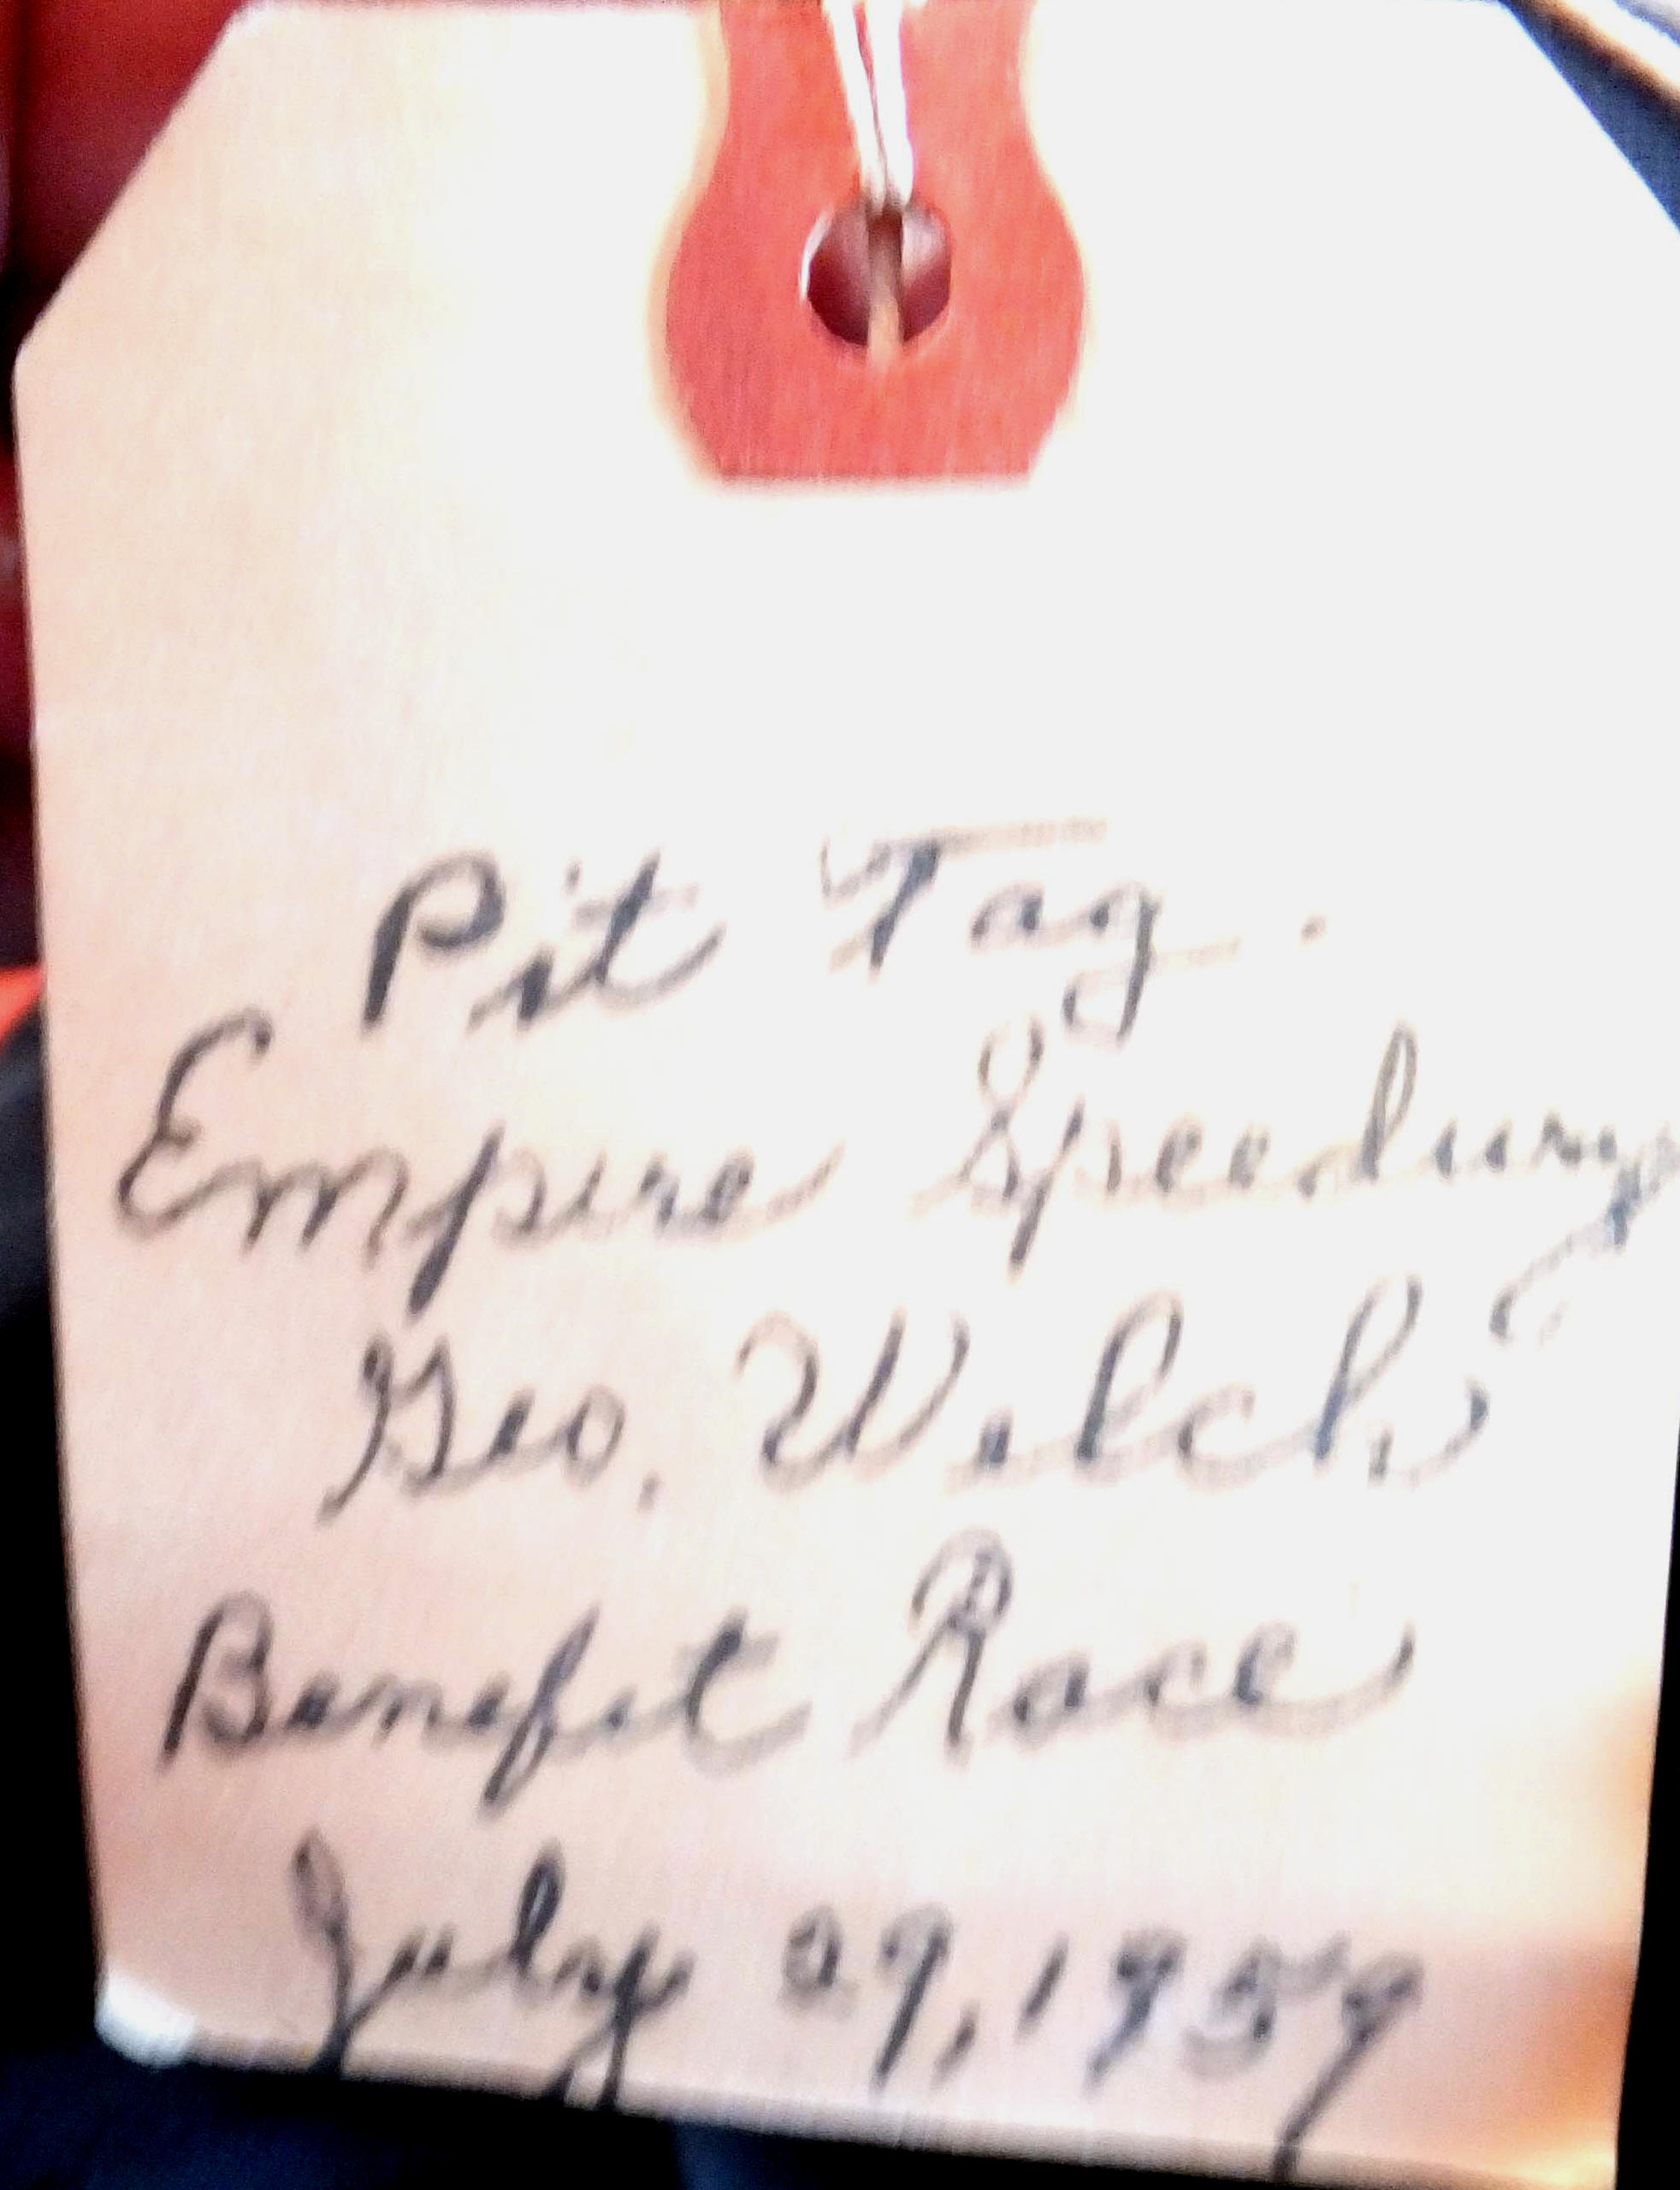 Pit Tag.
Empire Speedway
Geo. Welch
Benefit Race
July 29, 1959